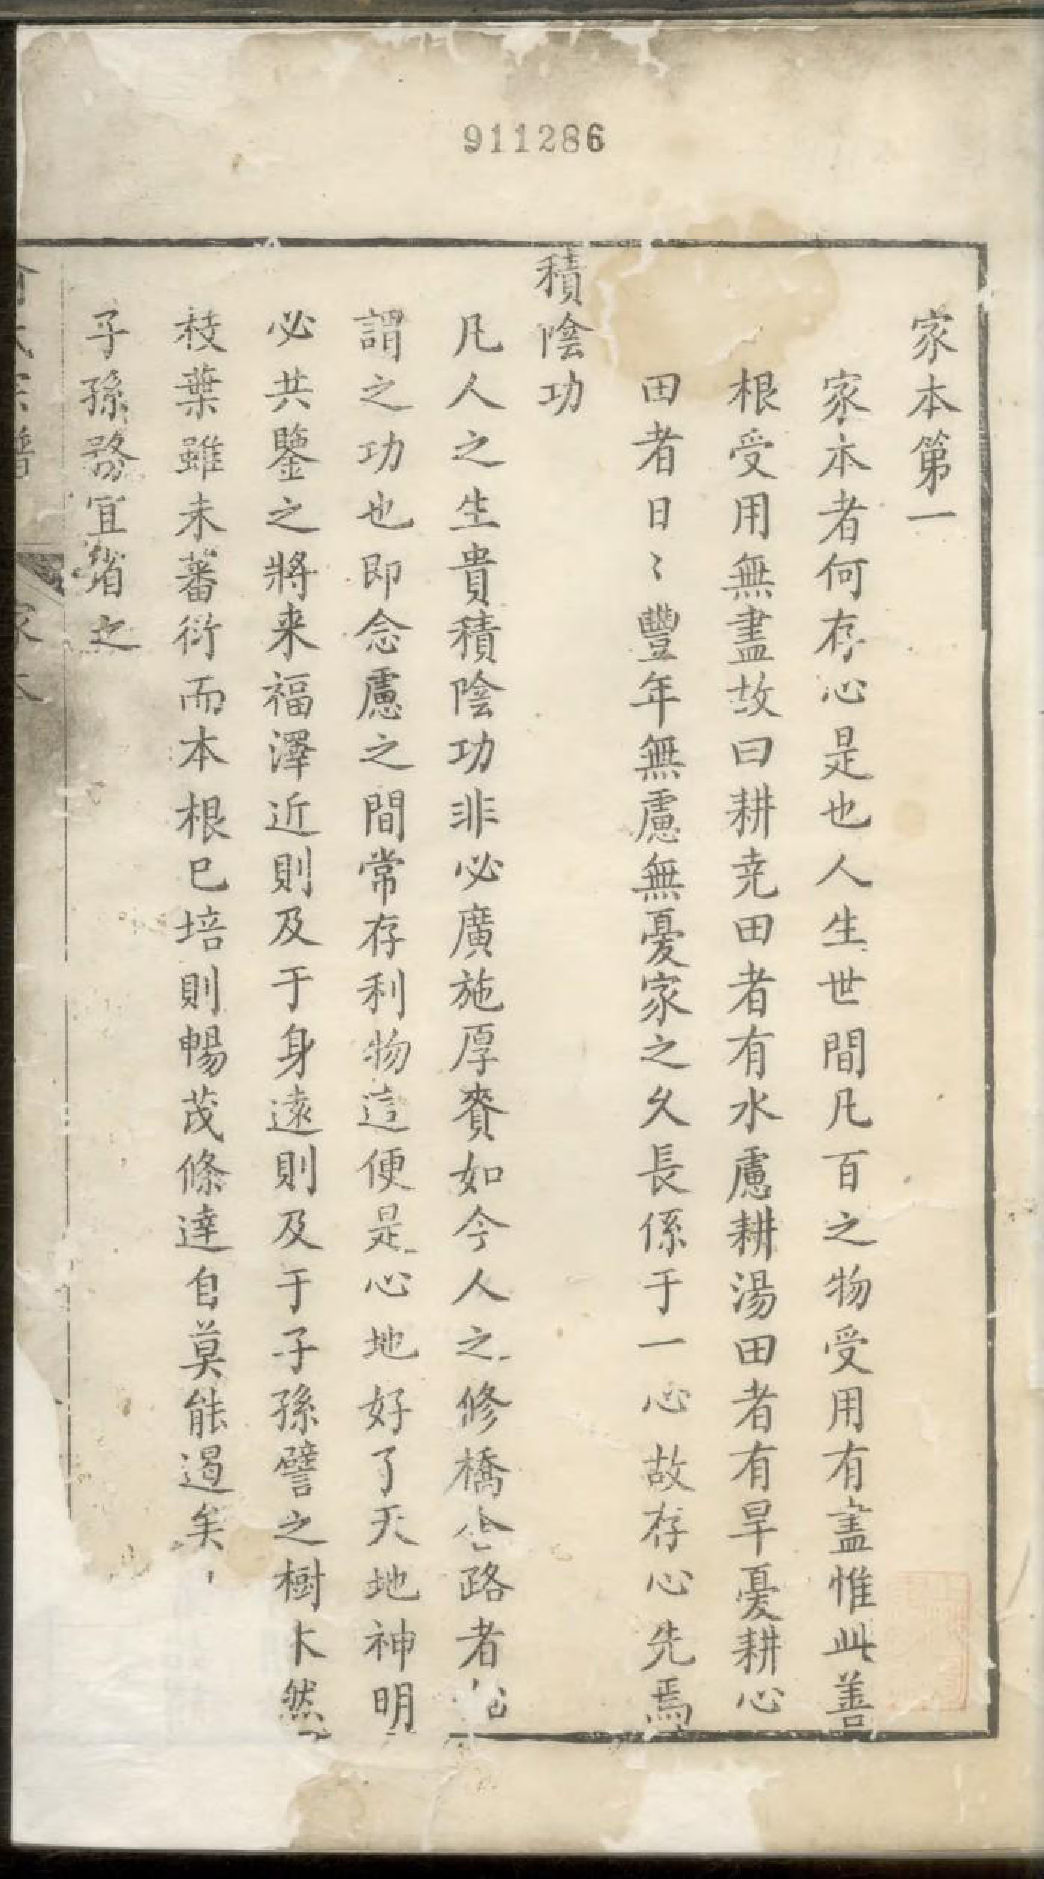 911286
家本第一
家本者何存心是也人生世間凡百之物受用有盡惟此善
根受用無盡故曰耕尭田者有水慮耕湯田者有旱憂耕心
田者日〻豐年無慮無憂家之久長係于一心故存心先焉
積陰功
凡人之生貴積陰功非必廣施厚賚如今人之修橋路者
謂之功也即念慮之間常存利物這便是心地好了天地神明
必共鑒之將来福澤近則及于身遠則及于子孫譬之樹木然
枝葉雖未蕃衍而本根已培則暢茂條達自莫能遏矣
子孫務宜省之
氏宗譜 家本